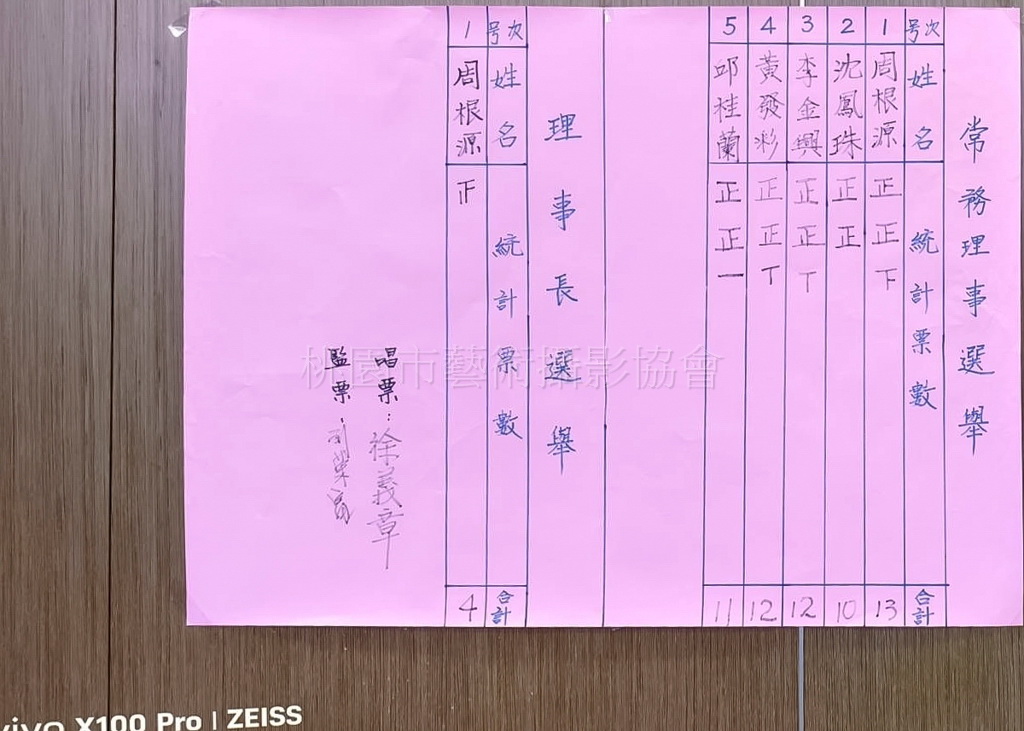 常務理事選舉
号次 姓名 統計票數 合計
1 周根源 正正下 13
2 沈鳳珠 正正 10
3 李金興 正正丅 12
4 黃發彩 正正丅 12
5 邱桂蘭 正正一 11
理事長選舉
号次 姓名 統計票數 合計
1 周根源 4
唱票：徐義章
監票：
桃園市藝術攝影協會
vivo X100 Pro | ZEISS